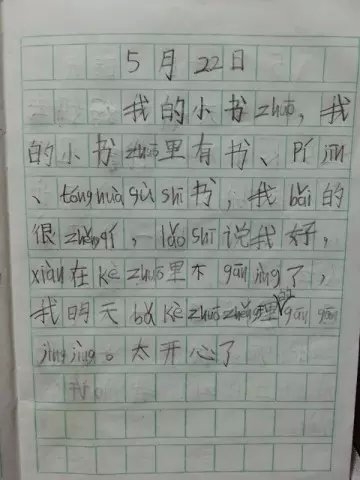 5月22日
我的小书zhuō，我
的小书zhuō里有书、Pí jīn
、tónghuà gù shì书，我bǎi的
很zhěng忻，lǎo shī说我好，
xiàn在kè zhuō里不gān jìng了，
我明天bǎ kè zhuō zhěng理gān gān
jìng jìng。太开心了